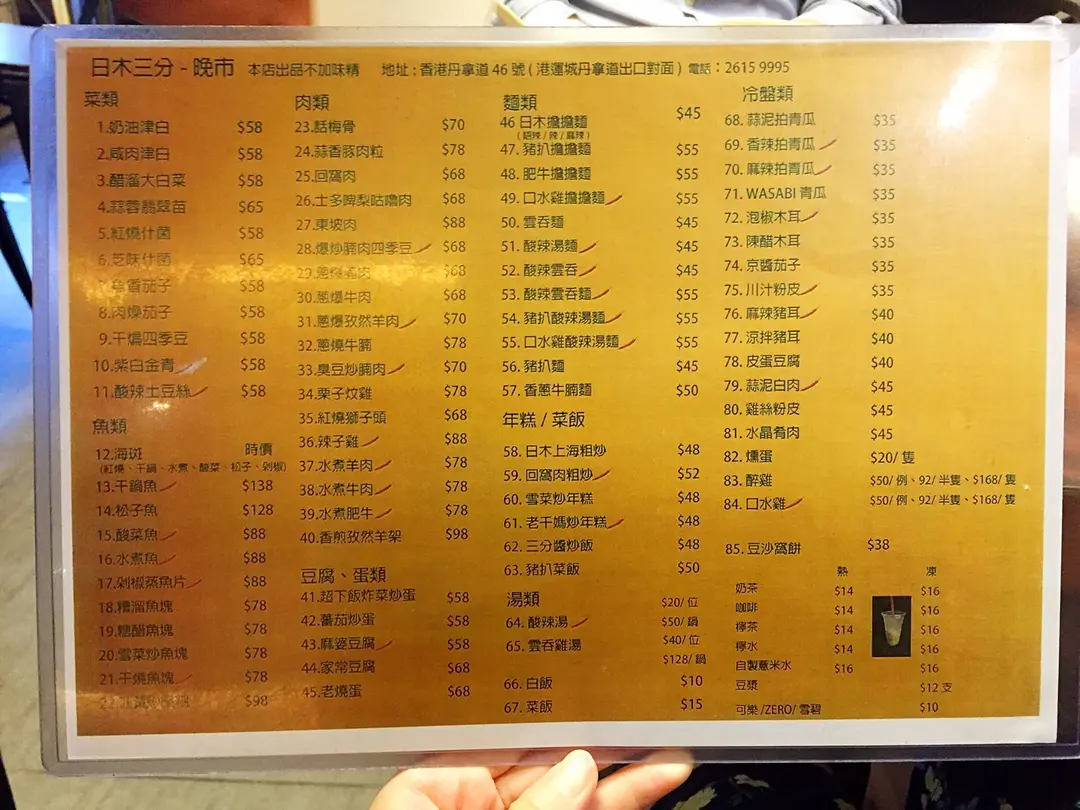 日木三分 - 晚市 本店出品不加味精 地址 : 香港丹拿道 46 號 ( 港運城丹拿道出口對面 ) 電話 : 2615 9995
菜類
1.奶油津白 $58
2.咸肉津白 $58
3.醋溜大白菜 $58
4.蒜蓉翡翠苗 $65
5.紅燒什菌 $58
6.芝味什菌 $65
魚香茄子 $58
8.肉燥茄子 $58
9.干煸四季豆 $58
10.紫白金青 $58
11.酸辣土豆絲 $58
魚類
12.海斑 時價
(紅燒、干鍋、水煮、酸菜、松子、剁椒)
13.干鍋魚 $138
14.松子魚 $128
15.酸菜魚 $88
16.水煮魚 $88
17.剁椒蒸魚片 $88
18.糟溜魚塊 $78
19.糖醋魚塊 $78
20.雪菜炒魚塊 $78
21.干燒魚塊 $78
22. $98
肉類
23.話梅骨 $70
24.蒜香豚肉粒 $78
25.回窩肉 $68
26.士多啤梨咕嚕肉 $68
27.東坡肉 $88
28.爆炒腩肉四季豆 $68
29.蔥爆 肉 $68
30.蔥爆牛肉 $68
31.蔥爆孜然羊肉 $70
32.蔥燒牛腩 $78
33.臭豆炒腩肉 $70
34.栗子炆雞 $78
35.紅燒獅子頭 $68
36.辣子雞 $88
37.水煮羊肉 $78
38.水煮牛肉 $78
39.水煮肥牛 $78
40.香煎孜然羊架 $98
豆腐、蛋類
41.超下飯炸菜炒蛋 $58
42.蕃茄炒蛋 $58
43.麻婆豆腐 $58
44.家常豆腐 $68
45.老燒蛋 $68
麵類
46 日木擔擔麵 $45
47. 豬扒擔擔麵 $55
48. 肥牛擔擔麵 $55
49. 口水雞擔擔麵 $55
50. 雲吞麵 $45
51. 酸辣湯麵 $45
52. 酸辣雲吞 $45
53. 酸辣雲吞麵 $55
54. 豬扒酸辣湯麵 $55
55. 口水雞酸辣湯麵 $55
56. 豬扒麵 $45
57. 香蔥牛腩麵 $50
年糕 / 菜飯
58. 日木上海粗炒 $48
59. 回窩肉粗炒 $52
60. 雪菜炒年糕 $48
61. 老干媽炒年糕 $48
62. 三分醬炒飯 $48
63. 豬扒菜飯 $50
湯類
$20/ 位
64. 酸辣湯 $50/ 鍋
65. 雲吞雞湯 $40/ 位
$128/ 鍋
66. 白飯 $10
67. 菜飯 $15
冷盤類
68. 蒜泥拍青瓜 $35
69. 香辣拍青瓜 $35
70. 麻辣拍青瓜 $35
71. WASABI 青瓜 $35
72. 泡椒木耳 $35
73. 陳醋木耳 $35
74. 京醬茄子 $35
75. 川汁粉皮 $35
76. 麻辣豬耳 $40
77. 涼拌豬耳 $40
78. 皮蛋豆腐 $40
79. 蒜泥白肉 $45
80. 雞絲粉皮 $45
81. 水晶肴肉 $45
82. 燻蛋 $20/ 隻
83. 醉雞 $50/ 例、92/ 半隻、$168/ 隻
84. 口水雞 $50/ 例、92/ 半隻、$168/ 隻
85. 豆沙窩餅 $38
熱 凍
奶茶 $14 $16
咖啡 $14 $16
檸茶 $14 $16
檸水 $14 $16
自製薏米水 $16 $16
豆漿 $12 支
可樂 /ZERO/ 雪碧 $10